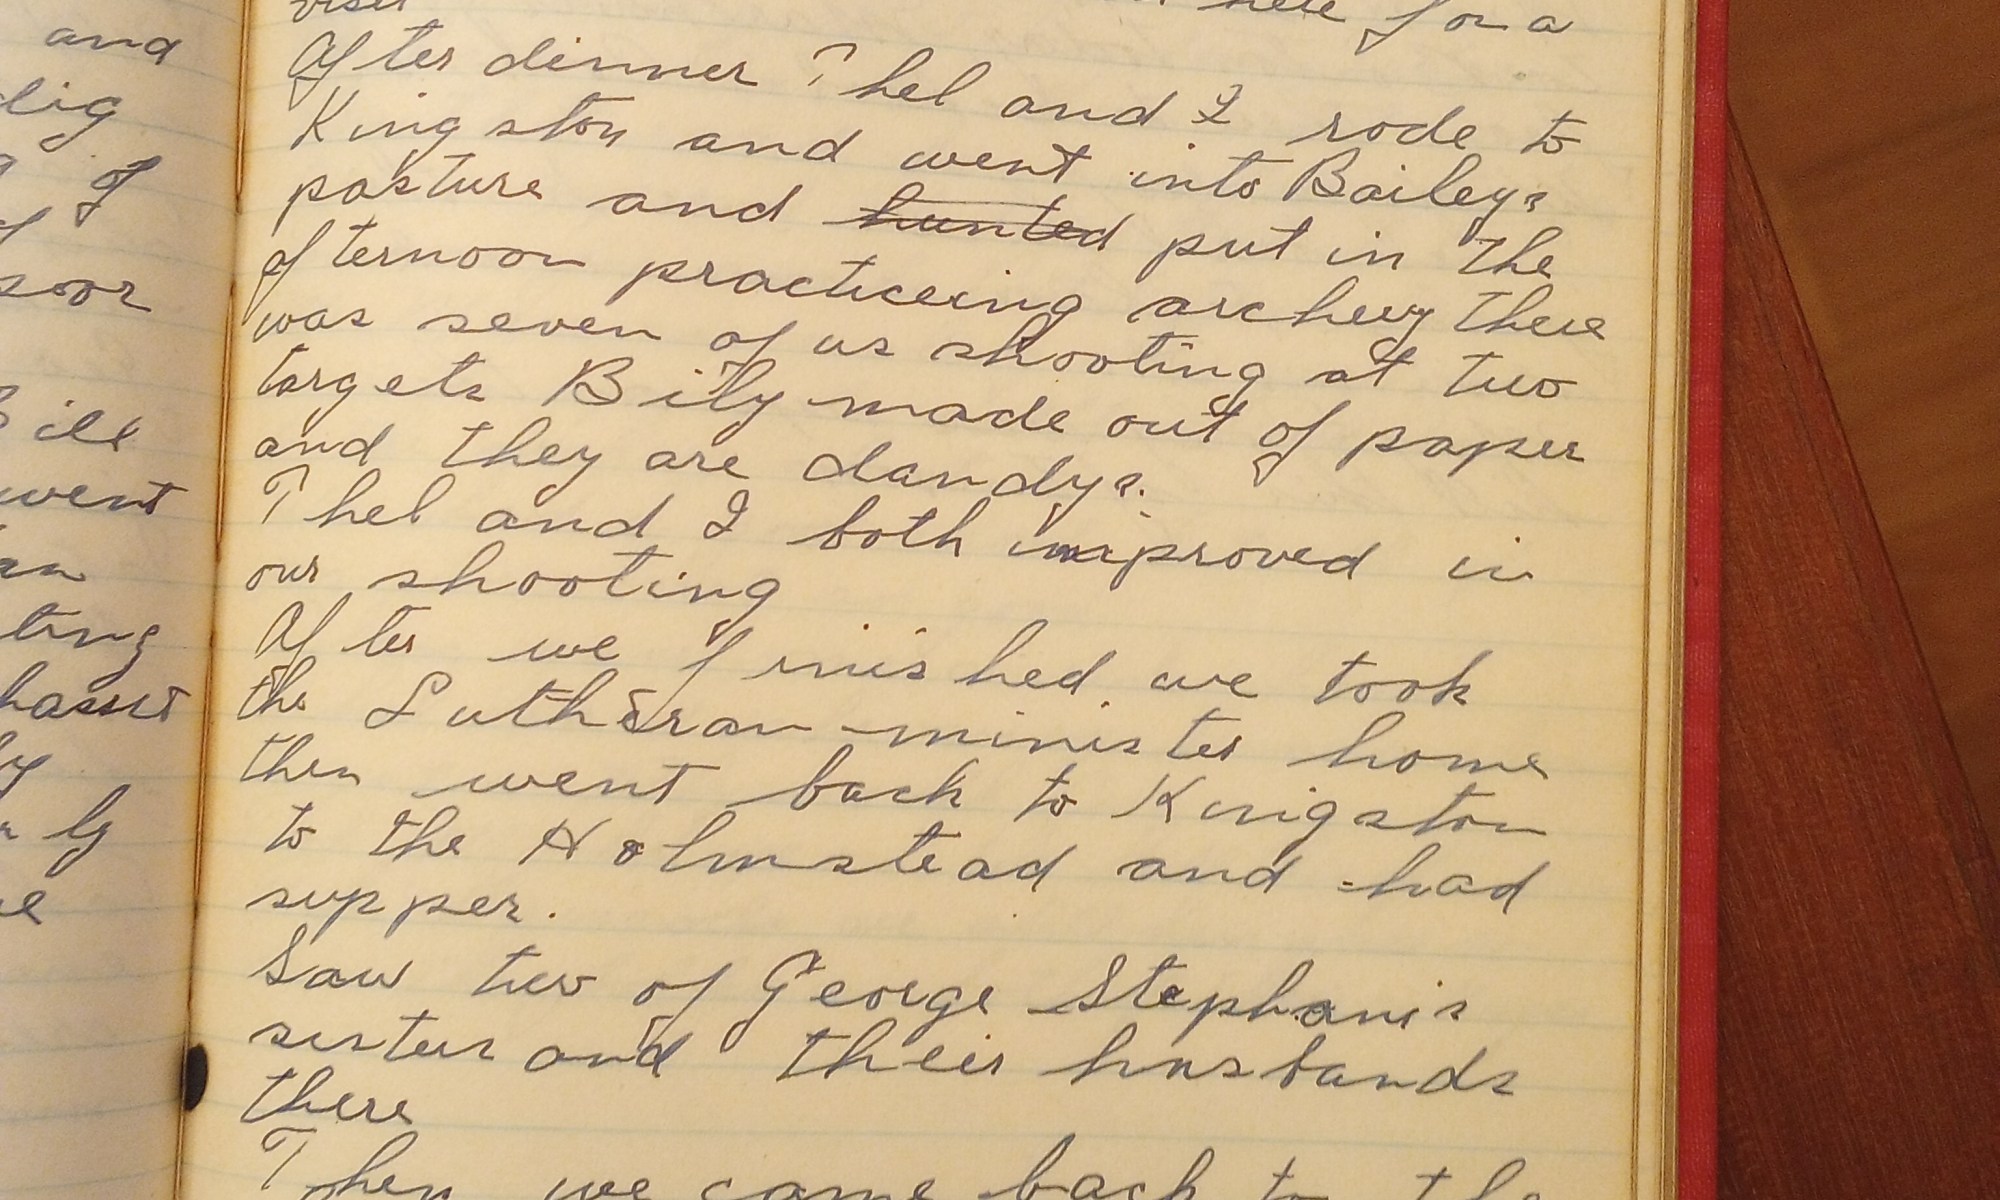 and
dig
of
poor
ill
went
ting
ly
visit here for a
After dinner Thel and I rode to
Kingston and went into Baileys
pasture and hunted put in the
afternoon practiceing archery there
was seven of us shooting at two
targets Bily made out of paper
and they are dandys.
Thel and I both improved in
our shooting
After we finished we took
the Lutheran minister home
then went back to Kingston
to the Holmstead and had
supper.
Saw two of George Stephanis
sisters and their husbands
there
Then we came back to the